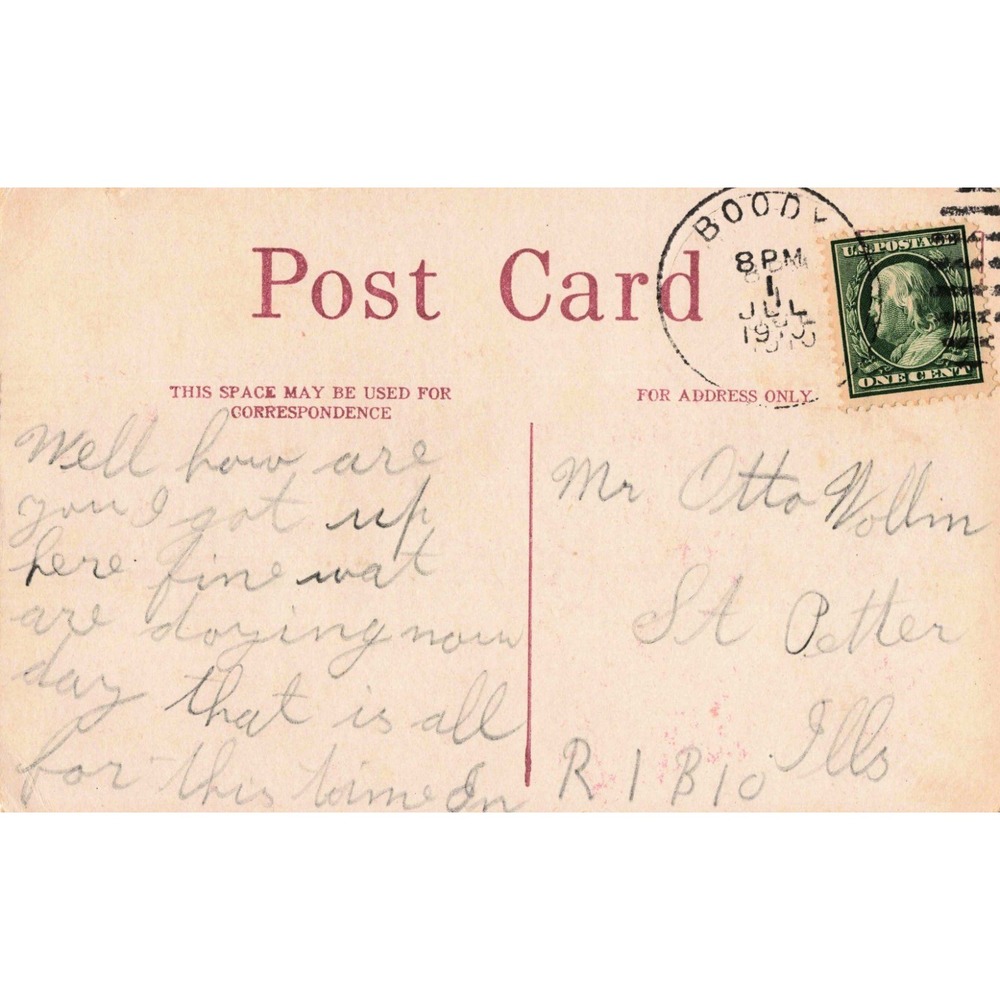 Post Card
BOODY
8 PM
1
JUL
1910
U.S. POSTAGE
ONE CENT
THIS SPACE MAY BE USED FOR
CORRESPONDENCE
FOR ADDRESS ONLY
Well how are
you I got up
here fine wat
are doying now
day that is all
for this time
Mr Otto Vollm
St Petter
Ills
R 1 B 10